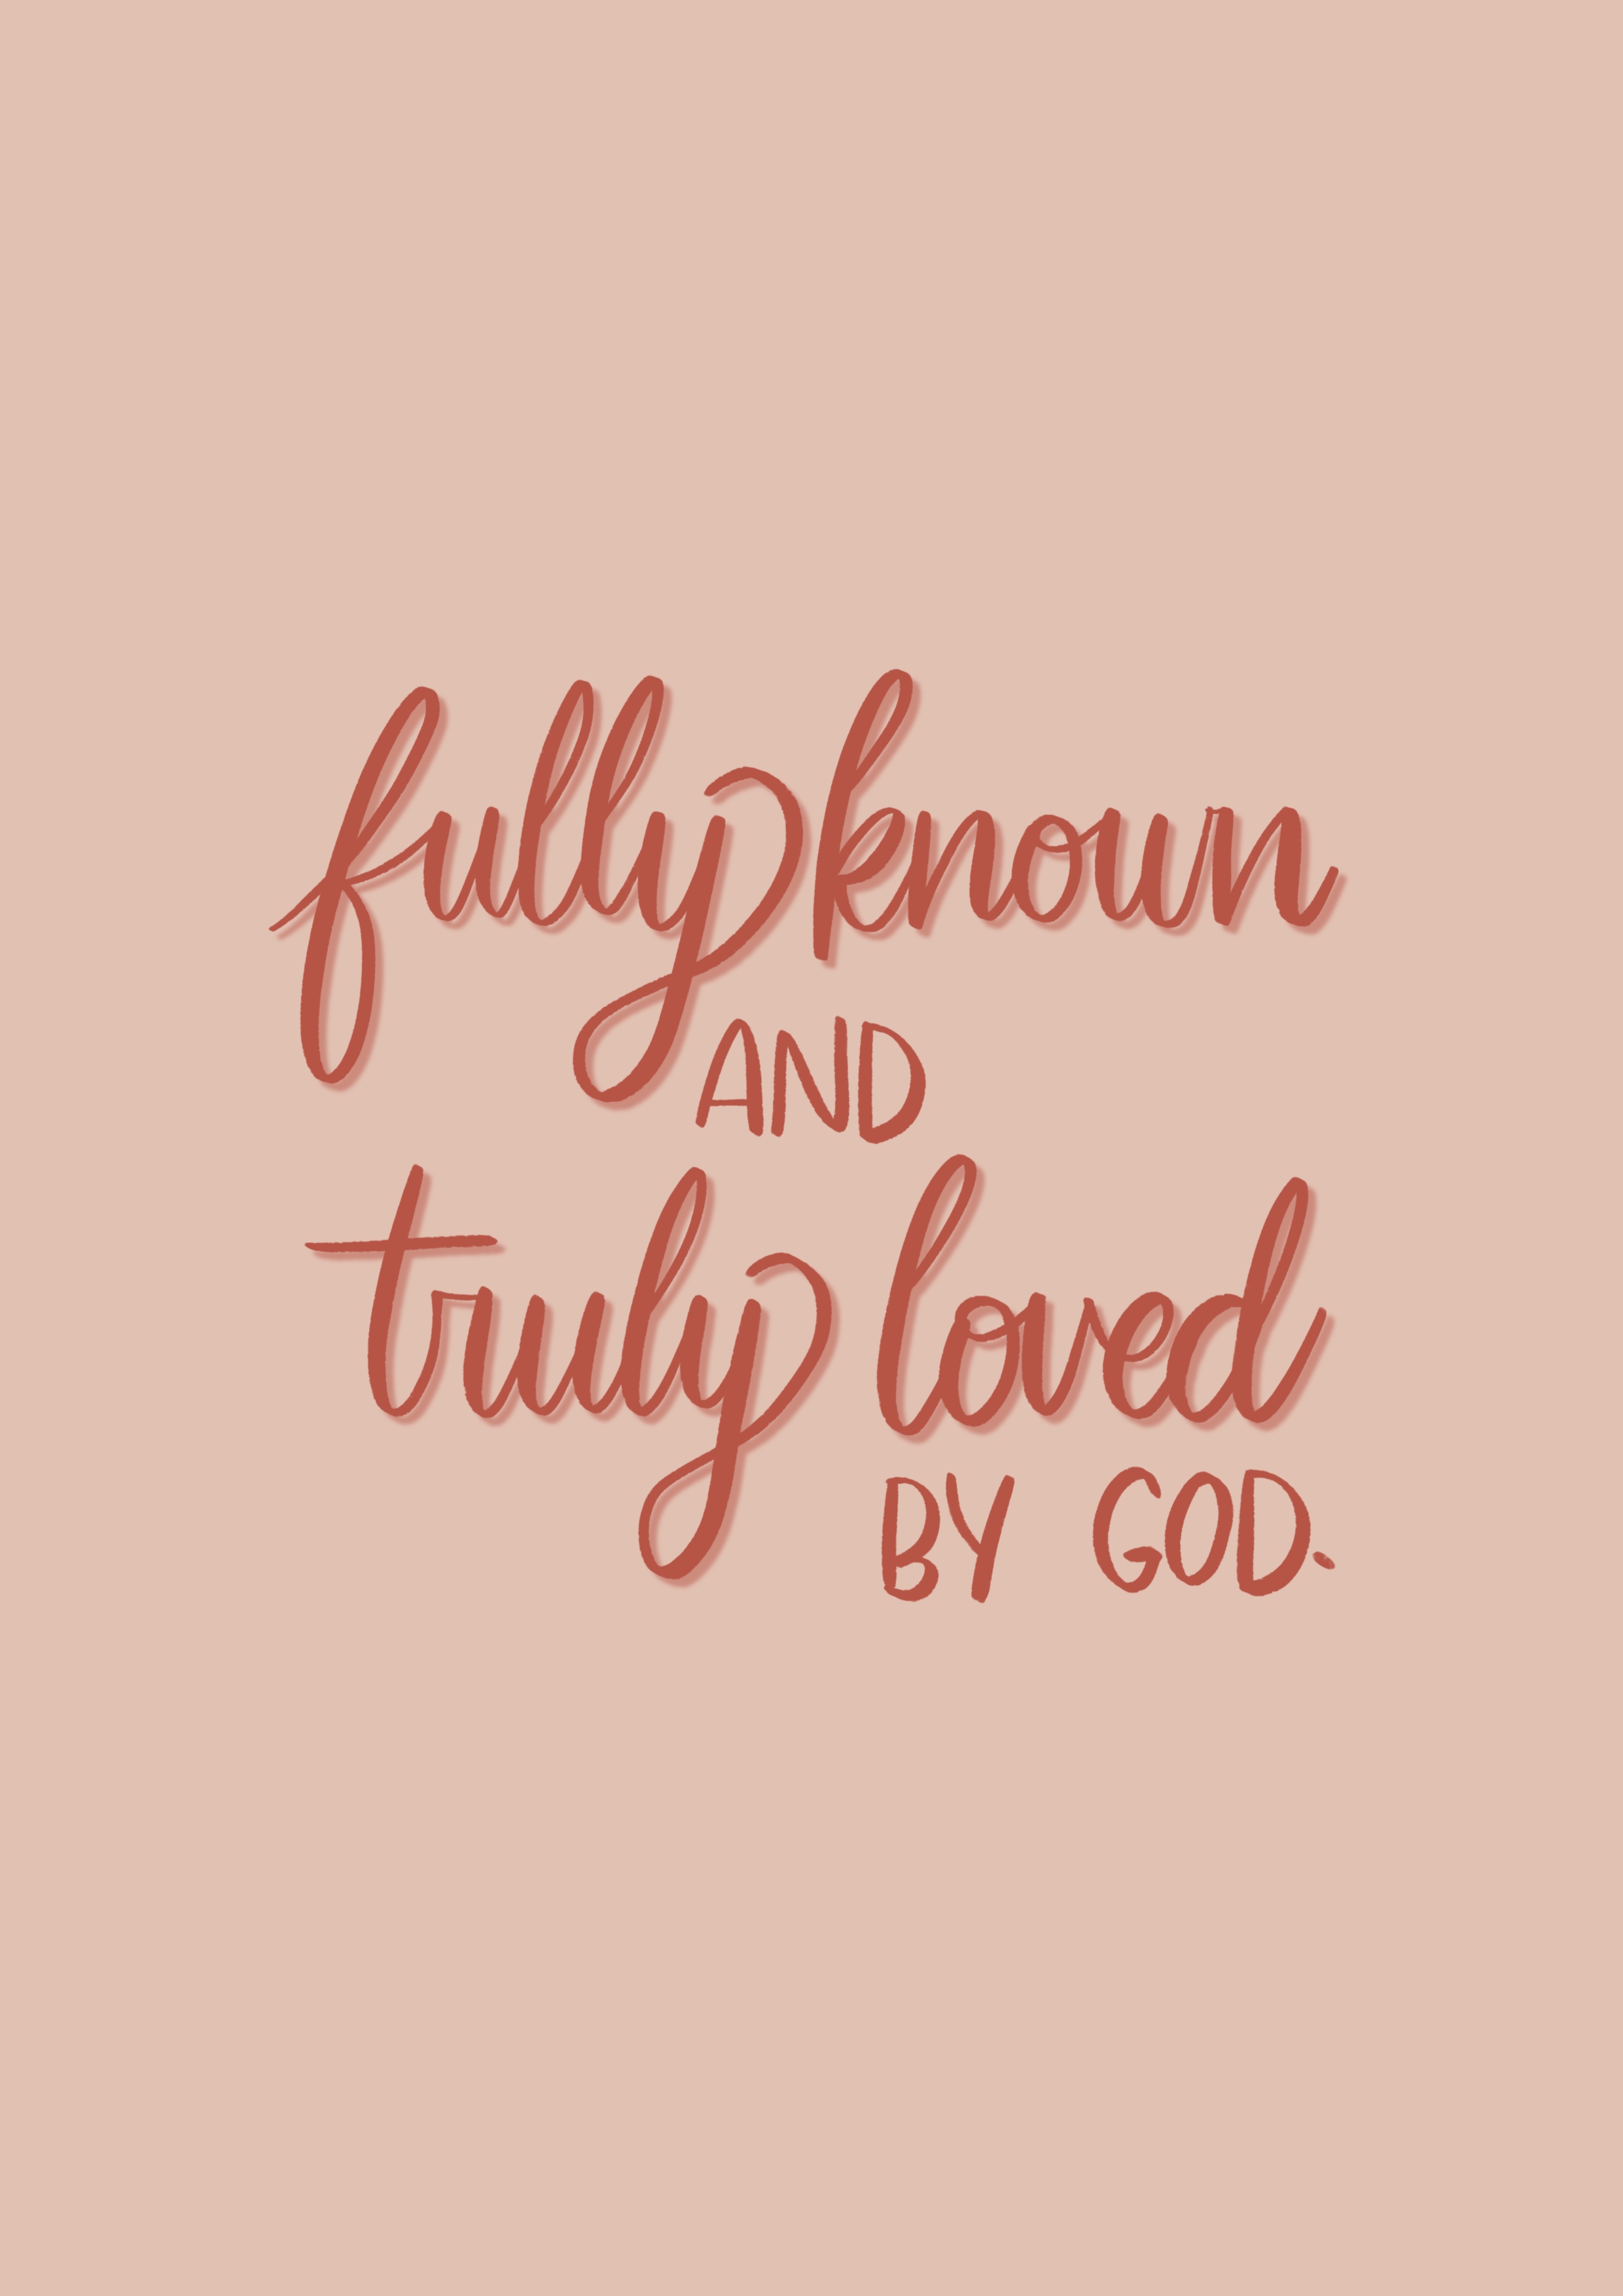 fully known
AND
truly loved
BY GOD.